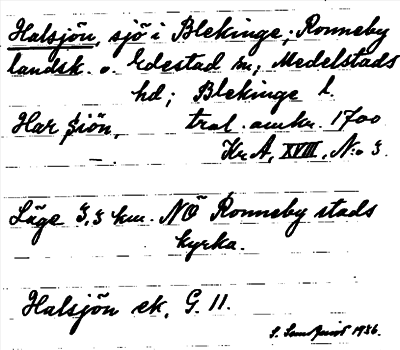 Halsjön, sjö i Blekinge; Ronneby
landsk. o. Edestad sn; Medelstads
hd; Blekinge l.
Har Siön, tral. ankr. 1700
Kr. A, XVIII, N:o 3.
Läge 3,3 km. NÖ Ronneby stads
kyrka.
Halsjön ek. G. 11.
S. 1936.